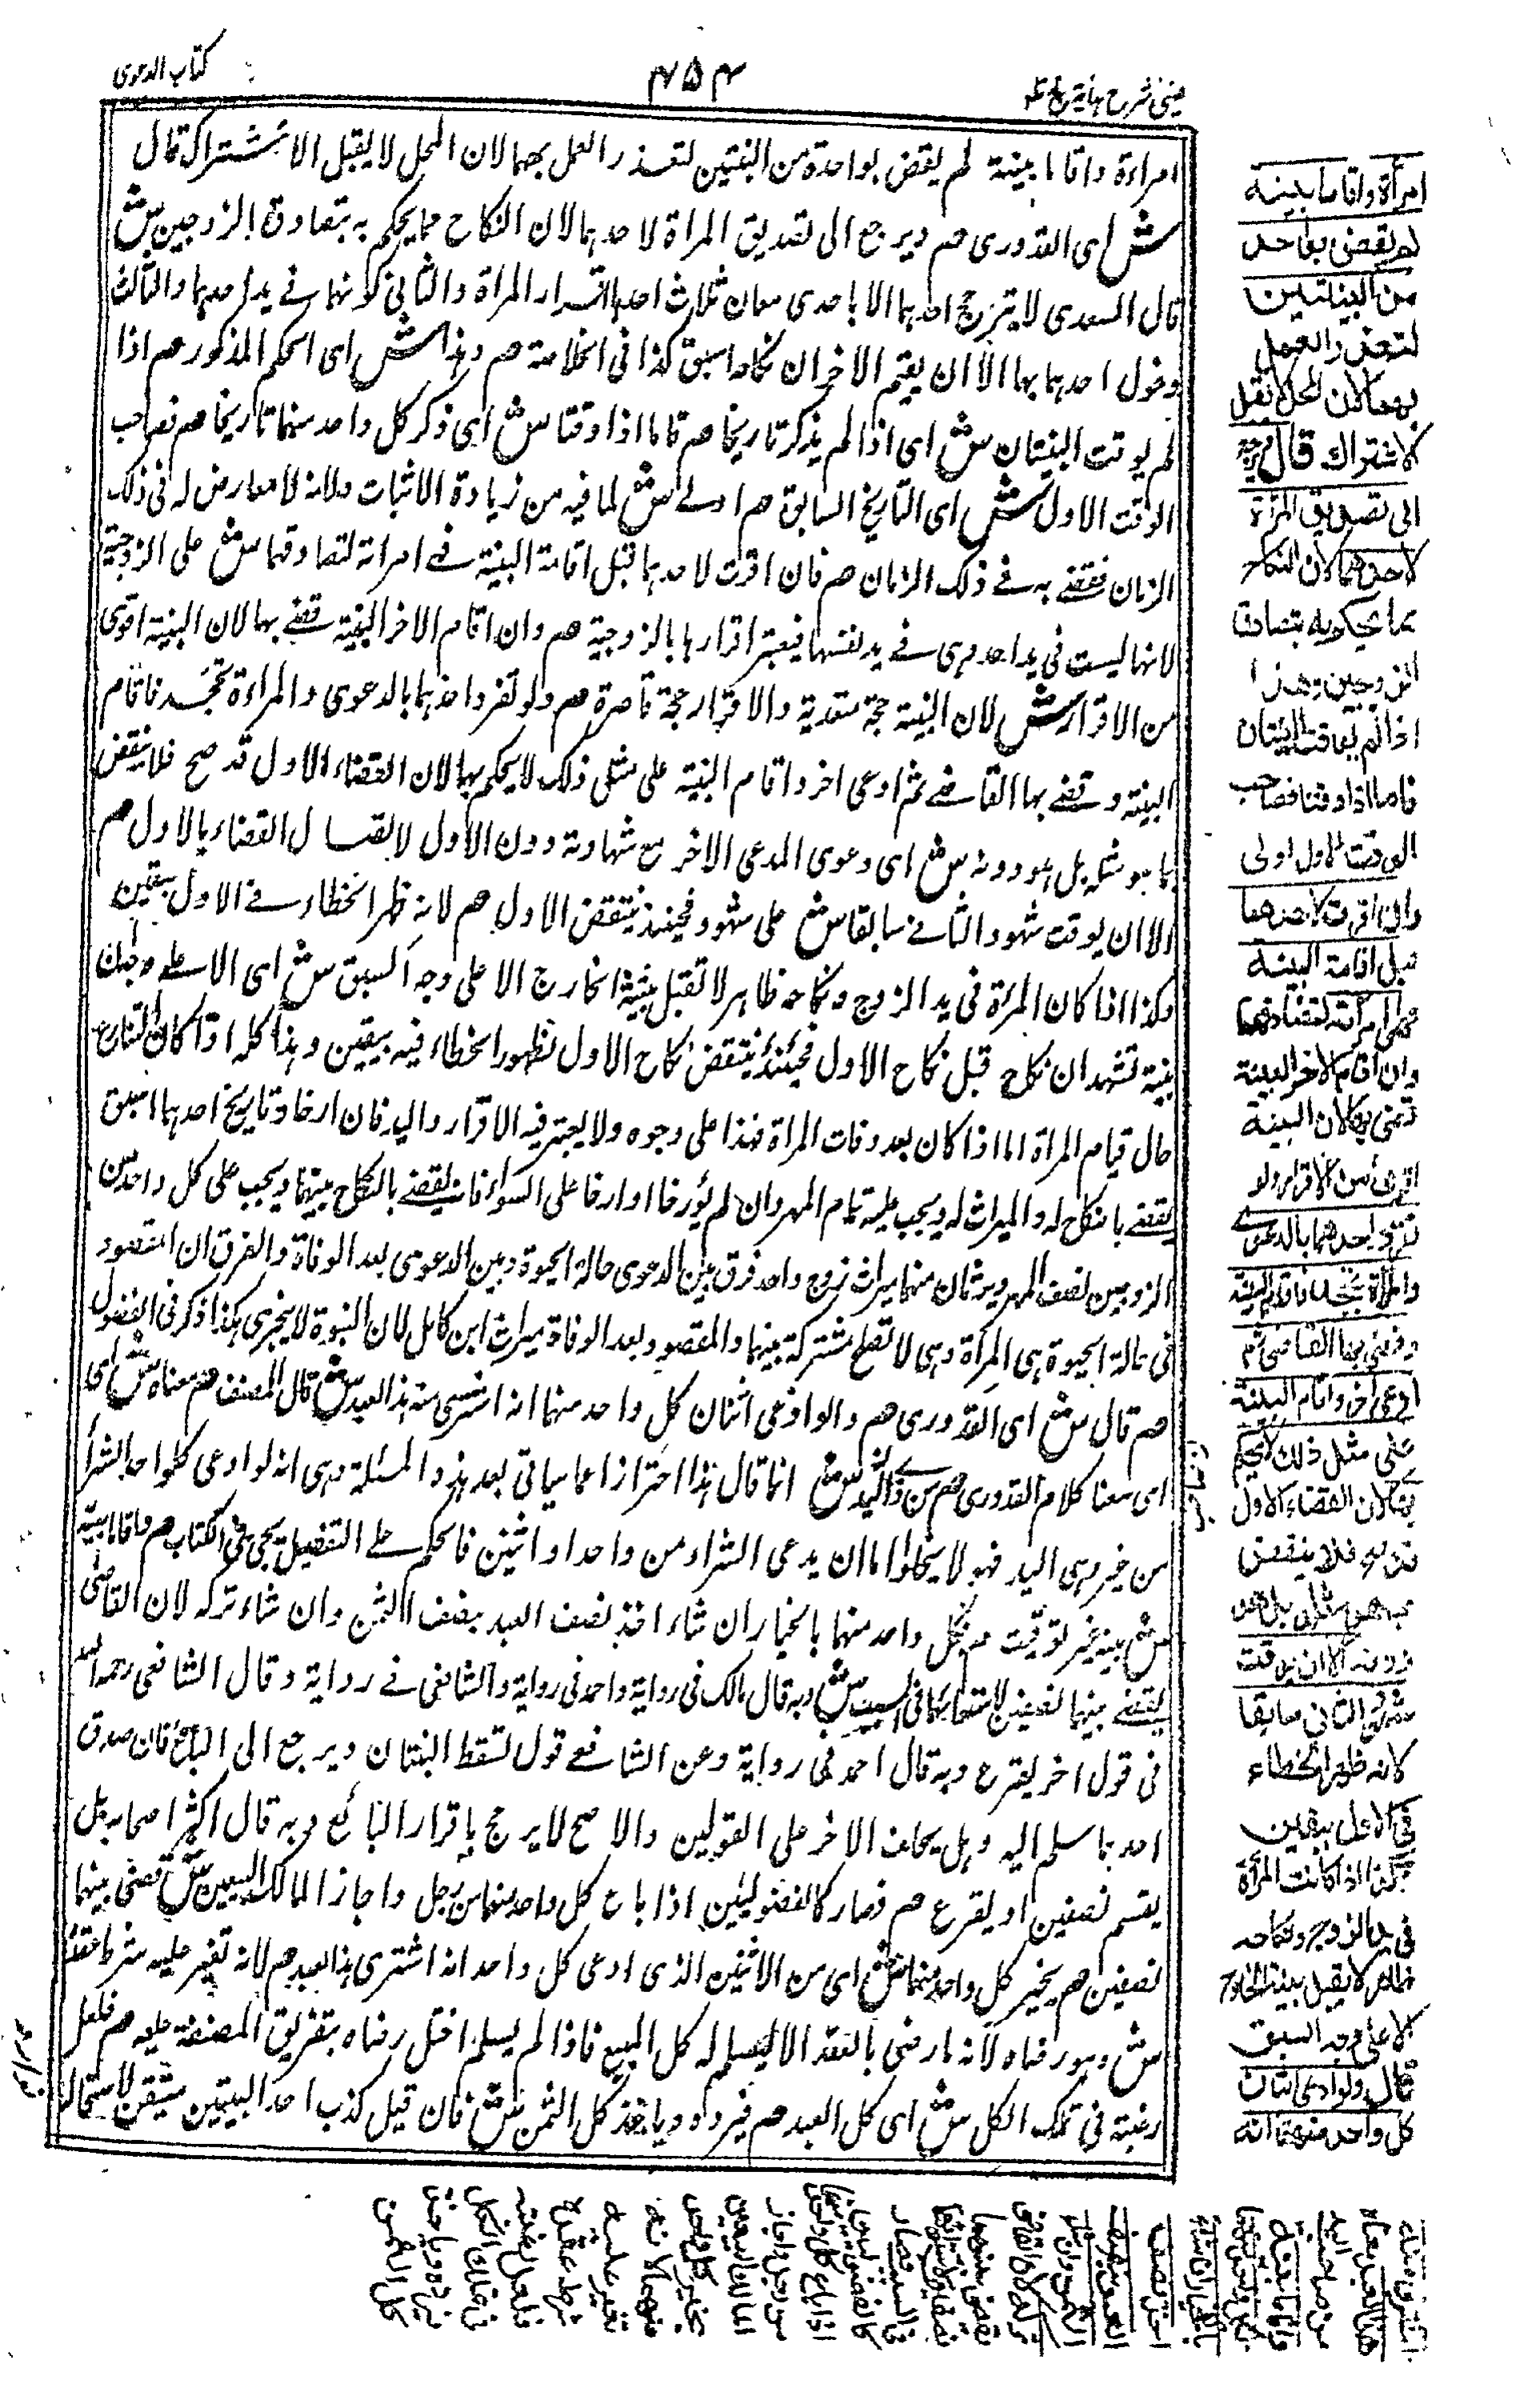 عینی شرح ہدایہ
۴۵۴
کتاب الدعوی
امراءة واقاما بینة لم یقض بواحدة من البینتین لتعذر العمل بهما لان المحل لا یقبل الاشتراک قال
ش ای القدوری هم ویرجع الی تصدیق المراة لاحدهما لان النکاح مما یحکم به بتصادق الزوجین ش
قال السعدی لا یترجح احدهما الا باحدی معان ثلاث احدها اقرار المراة والثانی کونها فے ید احدهما والثالث
دخول احدهما بها الا ان یقیم الاخر ان نکاحه اسبق کذا فی الخلاصة هم وهذا ش ای الحکم المذکور هم اذا
لم یوقت البینتان ش ای اذا لم یذکر تاریخا هم فاما اذا وقتا ش ای ذکر کل واحد منهما تاریخا هم فصاحب
الوقت الاول ش ای التاریخ السابق هم اولے ش لما فیه من زیادة الاثبات ولانه لا معارض له فی ذلک
الزمان فقضے به فے ذلک الزمان هم فان اقرت لاحدهما قبل اقامة البینة فهے امراته لتصادقهما ش علی الزوجیة
لانها لیست فی ید احد وهی فے ید نفسها فیعتبر اقرارها بالزوجیة هم وان اقام الاخر البینة قضے بها لان البینة اقوی
من الاقرار ش لان البینة حجة متعدیة والاقرار حجة قاصرة هم ولو تفرد احدهما بالدعوی والمراءة تجحد فاقام
البینة وقضے بها القاضے ثم ادعی اخر واقام البینة علی مثل ذلک لا یحکم بها لان القضاء الاول قد صح فلا ینقض
بما هو مثله بل هو دونه ش ای دعوی المدعی الاخر مع شهادته دون الاول لاتصال القضاء بالاول هم
الا ان یوقت شهود الثانے سابقا ش علی شهود فحینئذ ینتقض الاول هم لانه ظهر الخطاء فے الاول بیقین
وکذا اذا کان المرأة فی ید الزوج ونکاحه ظاهر لا تقبل بینة الخارج الا علی وجه السبق ش ای الا علے وجه ان
بینة تشهد ان نکاحه قبل نکاح الاول فحینئذ ینتقض نکاح الاول لظهور الخطاء فیه بیقین وهذا کله اذا کان التنازع
حال قیام المراة اما اذا کان بعد وفات المراة فهذا علی وجوه ولا یعتبر فیه الاقرار والید فان ارخا وتاریخ احدهما اسبق
یقضے بالنکاح له والمیراث له ویجب علیه تمام المهر وان لم یؤرخا او ارخا علی السواء فانه یقضے بالنکاح بینهما ویجب علی کل واحد من
الزوجین نصف المهر ویرثان منها میراث زوج واحد فرق بین الدعوی حالة الحیوة وبین الدعوی بعد الوفاة والفرق ان المقصود
فی حالة الحیوة هی المرأة وهی لا تصلح مشترکة بینهما والمقصود بعد الوفاة میراث ابن کامل لان البنوة لا یتجزی هکذا ذکر فی الفصول
هم قال ش ای القدوری هم ولو ادعی اثنان کل واحد منهما انه اشتری منه هذا العبد ش قال المصنف هم معناه ش ای
ای معنا کلام القدوری هم من ذی الید ش انما قال هذا احترازا عما سیاتی بعد هذه المسئلة وهی انه لو ادعی کلواحد الشراء
من غیر ذی الید فهو لا یخلوا اما ان یدعی الشراء من واحد او اثنین فالحکم علے التفصیل یجی فی الکتاب هم واقاما بینة
ش بینة غیر توقیت هم فکل واحد منهما بالخیار ان شاء اخذ نصف العبد بنصف الثمن وان شاء ترکه لان القاضی
یقضے بینهما نصفین لاستوائهما فی السبب ش وبه قال مالک فی روایة واحمد فی روایة والشافعی فے روایة وقال الشافعی رحمه الله
فی قول اخر یقرع وبه قال احمد فی روایة وعن الشافعے قول تسقط البینتان ویرجع الی البائع فان صدق
احدهما سلم الیه وهل یحلف الاخر علی القولین والاصح لا یرجح باقرار البائع وبه قال اکثر اصحابه بل
یقسم نصفین او یقرع هم فصار کالفضولیین اذا باع کل واحد منهما من رجل واجاز المالک البیعین ش قضی بینهما
نصفین هم یخیر کل واحد منهما ش ای من الاثنین الذی ادعی کل واحد انه اشتری هذا العبد هم لانه تغیر علیه شرط عقده
ش وهو رضاه لانه ما رضی بالعقد الا لیسلم له کل المبیع فاذا لم یسلم اختل رضاه بتفریق الصفقة علیه هم فلعل
رغبته فی تملک الکل ش ای کل العبد هم فیرده ویاخذ کل الثمن ش فان قیل کذب احد البینتین متیقن لاستحالة
امرأة واقاما بینة
لم یقض بواحدة
من البینتین
لتعذر العمل
بهما لان المحل لا یقبل
الاشتراک قال ویرجع
الی تصدیق المرأة
لاحدهما لان النکاح
مما یحکم به بتصادق
الزوجین وهذا
اذا لم یوقت البینتان
فاما اذا وقتا فصاحب
الوقت الاول اولی
وان اقرت لاحدهما
قبل اقامة البینة
فهی امرأته لتصادقهما
وان اقام الاخر البینة
قضی بها لان البینة
اقوی من الاقرار ولو
تفرد احدهما بالدعوے
والمرأة تجحد فاقام البینة
وقضی بها القاضی ثم
ادعی اخر واقام البینة
علی مثل ذلک لا یحکم
بها لان القضاء الاول
قد صح فلا ینقض
بما هو مثله بل هو
دونه الا ان یوقت
شهود الثانی سابقا
لانه ظهر الخطاء
فی الاول بیقین
وکذا اذا کانت المرأة
فی ید الزوج ونکاحه
ظاهر لا یقبل بینة الخارج
الا علی وجه السبق
قال ولو ادعی اثنان
کل واحد منهما انه
اشتری منه
هذا العبد معناه
من صاحب الید
واقاما بینة
فکل واحد منهما
بالخیار ان شاء
اخذ نصف
العبد بنصف
الثمن وان شاء
ترک لان القاضی
یقضی بینهما
نصفین لاستوائهما
فی السبب فصار
کالفضولیین
اذا باع کل واحد
من رجل واجاز
المالک البیعین
یخیر کل واحد
منهما لانه
تغیر علیه
شرط عقده
فلعل رغبته
فی تملک الکل
فیرده ویاخذ
کل الثمن